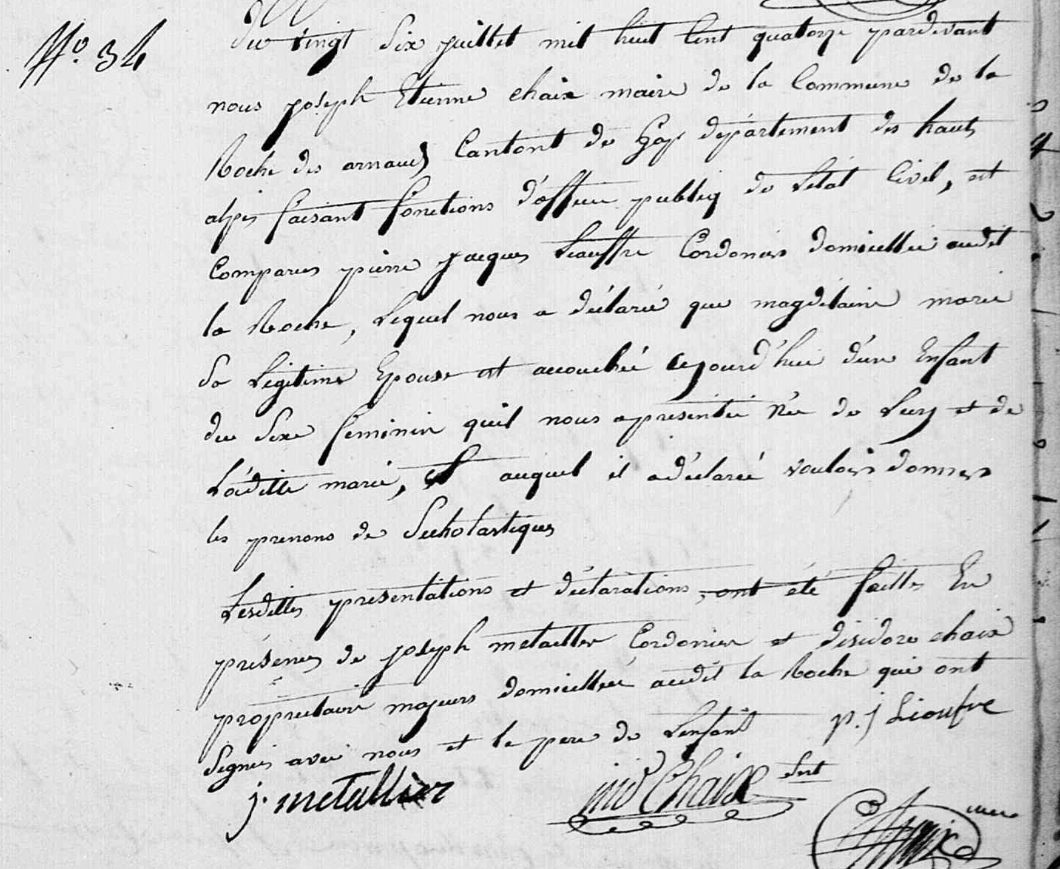 N.° 34
du vingt six juillet mil huit cent quatorze pardevant
nous joseph Etienne chaix maire de la Commune de la
Roche des arnauds Cantont de Gap département des hautes
alpes faisant fonctions d'officier publiq de L'état Civil, est
Comparus pierre jacques Lieauffre Cordonier domicillié audit
la Roche, Lequel nous a déclaré que magdelaine marie
Sa Légitime Epouse est accouchée cejourd'hui d'un Enfant
du Sexe feminin quil nous apresentée Née de Luy et de
Laditte marie, et auquel il adéclaré vouloir donner
les prenons de Scholastiques
Lesdittes présentations et déclarations, ont été faittes En
présence de joseph metaillier Cordonier et disidore chaix
propriétaire majeurs domicilliés audit la Roche qui ont
Signés avec nous et le pere de Lenfant
p. j Lioufre
j. metallier
Chaix
Chaix maire